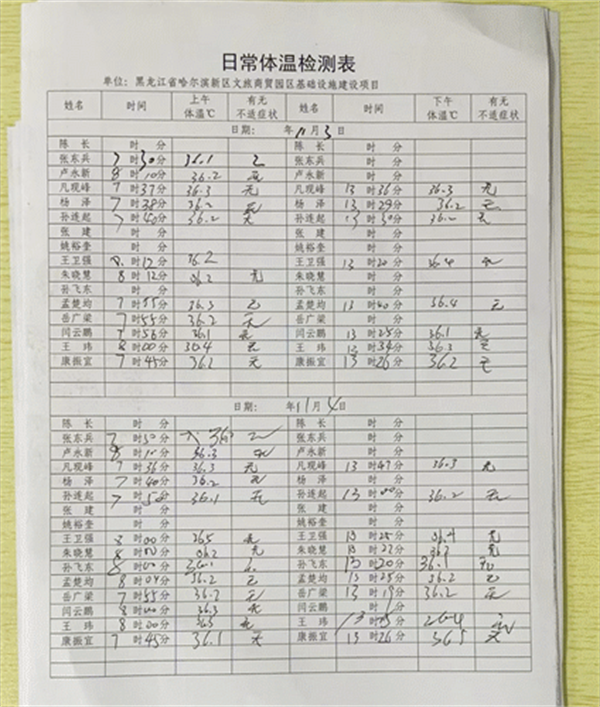 日常体温检测表
单位：黑龙江省哈尔滨新区文旅商贸园区基础设施建设项目
姓名 时间 上午体温℃ 有无不适症状 姓名 时间 下午体温℃ 有无不适症状
日期： 年11月3日
陈长 时 分 陈长 时 分
张东兵 7时30分 36.1 无 张东兵 时 分
卢永新 8时10分 36.2 无 卢永新 时 分
凡观峰 7时37分 36.3 无 凡观峰 13时36分 36.3 无
杨泽 7时38分 36.2 无 杨泽 13时29分 36.2 无
孙连起 7时40分 36.2 无 孙连起 13时30分 36.2 无
张建 时 分 张建 时 分
姚裕奎 时 分 姚裕奎 时 分
王卫强 8时12分 36.2 王卫强 13时20分 36.4 无
朱晓慧 8时12分 36.2 无 朱晓慧 时 分
孙飞东 时 分 孙飞东 时 分
孟楚均 7时55分 36.3 无 孟楚均 13时40分 36.4 无
岳广梁 7时55分 36.2 无 岳广梁 时 分
闫云鹏 7时56分 36.1 无 闫云鹏 13时25分 36.1 无
王玮 8时00分 36.4 无 王玮 时34分 36.3 无
康振宜 7时45分 36.2 无 康振宜 13时26分 36.2 无
日期： 年11月4日
陈长 时 分 陈长 时 分
张东兵 7时30分 36 无 张东兵 时 分
卢永新 8时10分 36.3 无 卢永新 时 分
凡观峰 7时36分 36.3 无 凡观峰 13时47分 36.3 无
杨泽 7时40分 36.2 无 杨泽 时 分
孙连起 7时50分 36.1 无 孙连起 13时00分 36.2 无
张建 时 分 张建 时 分
姚裕奎 时 分 姚裕奎 时 分
王卫强 8时00分 36.5 无 王卫强 13时25分 36.4 无
朱晓慧 8时00分 36.2 无 朱晓慧 13时27分 无
孙飞东 8时00分 36.1 无 孙飞东 13时20分 36.1 无
孟楚均 8时04分 36.2 无 孟楚均 13时25分 36.2 无
岳广梁 7时55分 36.2 无 岳广梁 13时19分 36.2 无
闫云鹏 8时00分 36.3 无 闫云鹏 时 分
王玮 8时00分 36.5 无 王玮 13时 分 无
康振宜 7时45分 36.1 无 康振宜 13时26分 36.5 无